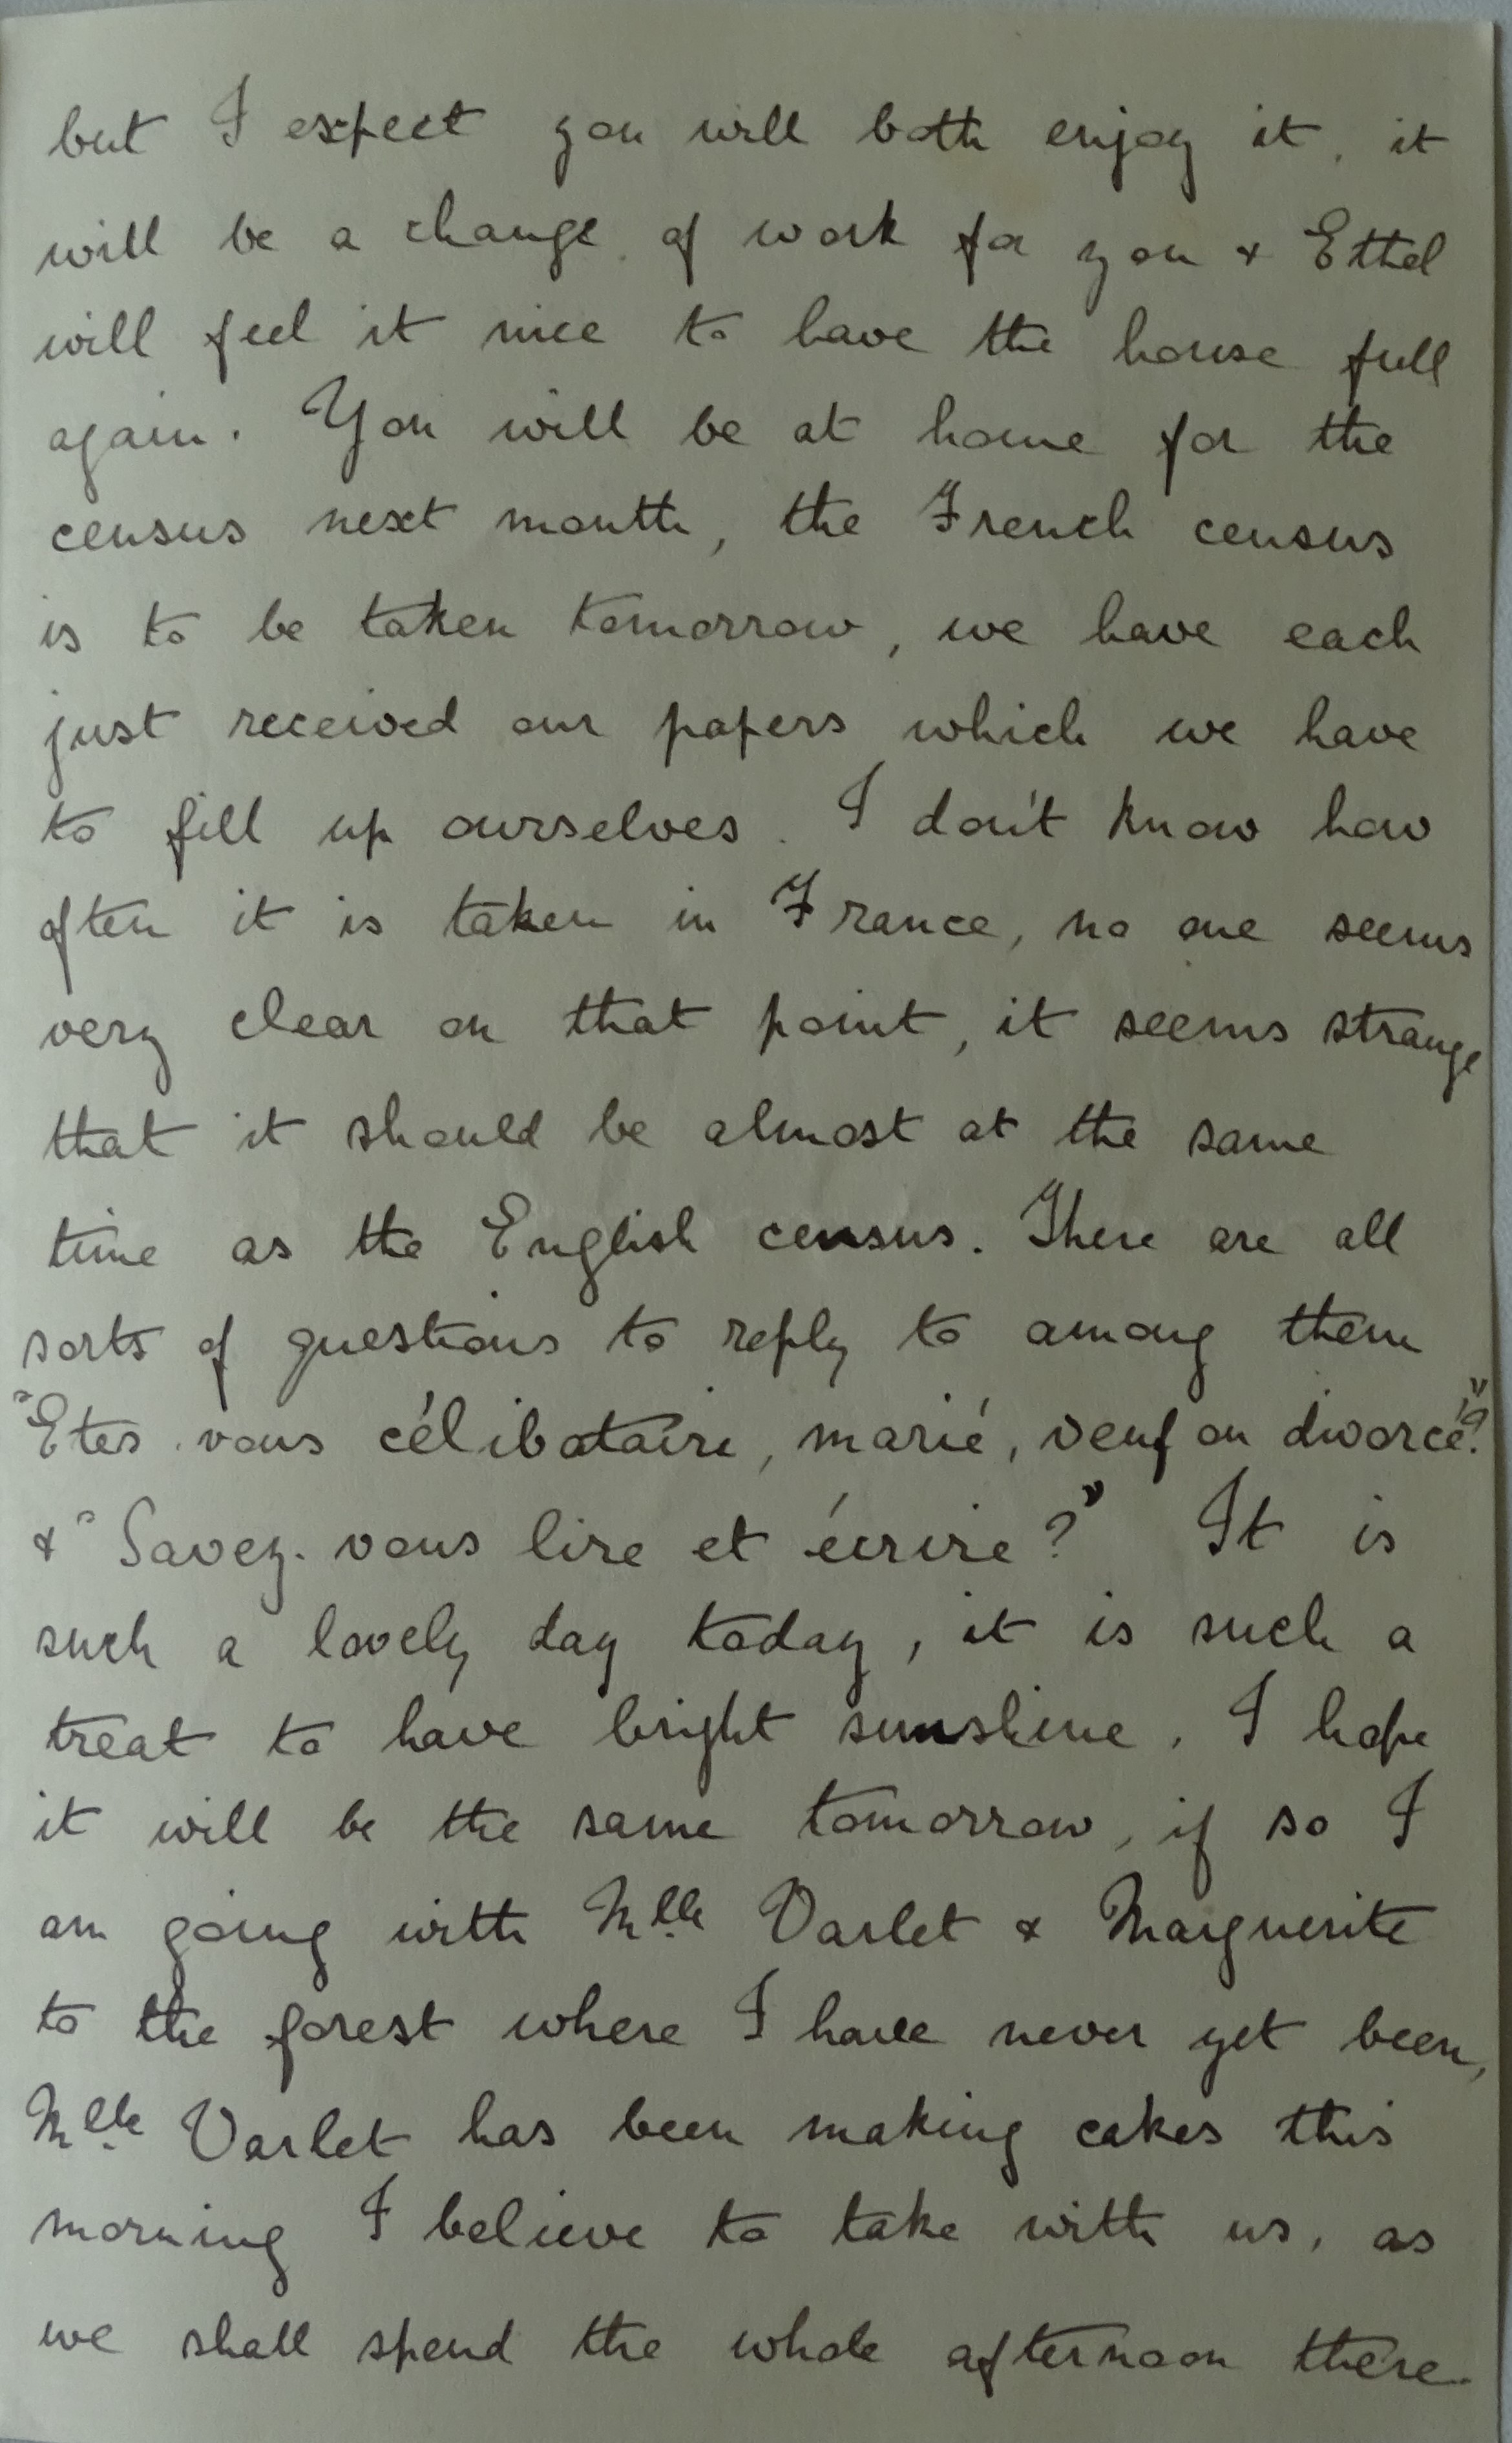 but I expect you will both enjoy it, it
will be a change of work for you & Ethel
will feel it nice to have the house full
again. You will be at home for the
census next month, the French census
is to be taken tomorrow, we have each
just received our papers which we have
to fill up ourselves. I don't know how
often it is taken in France, no one seems
very clear on that point, it seems strange
that it should be almost at the same
time as the English census. There are all
sorts of questions to reply to among them
"Etes-vous célibataire, marié, veuf ou divorcé?"
& "Savez-vous lire et écrire?" It is
such a lovely day today, it is such a
treat to have bright sunshine. I hope
it will be the same tomorrow, if so I
am going with Mlle Varlet & Marguerite
to the forest where I have never yet been,
Mlle Varlet has been making cakes this
morning I believe to take with us, as
we shall spend the whole afternoon there.